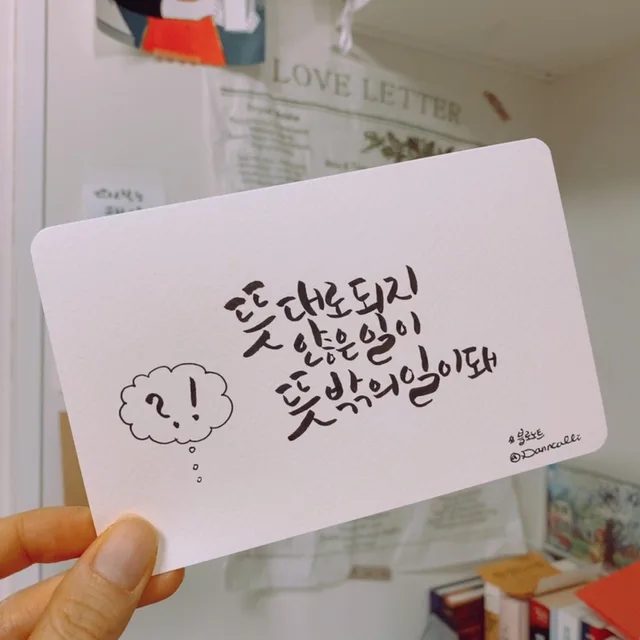 LOVE LETTER
뜻대로되지
않은일이
뜻밖의일이돼
?!
#블루노트
@Danncalli